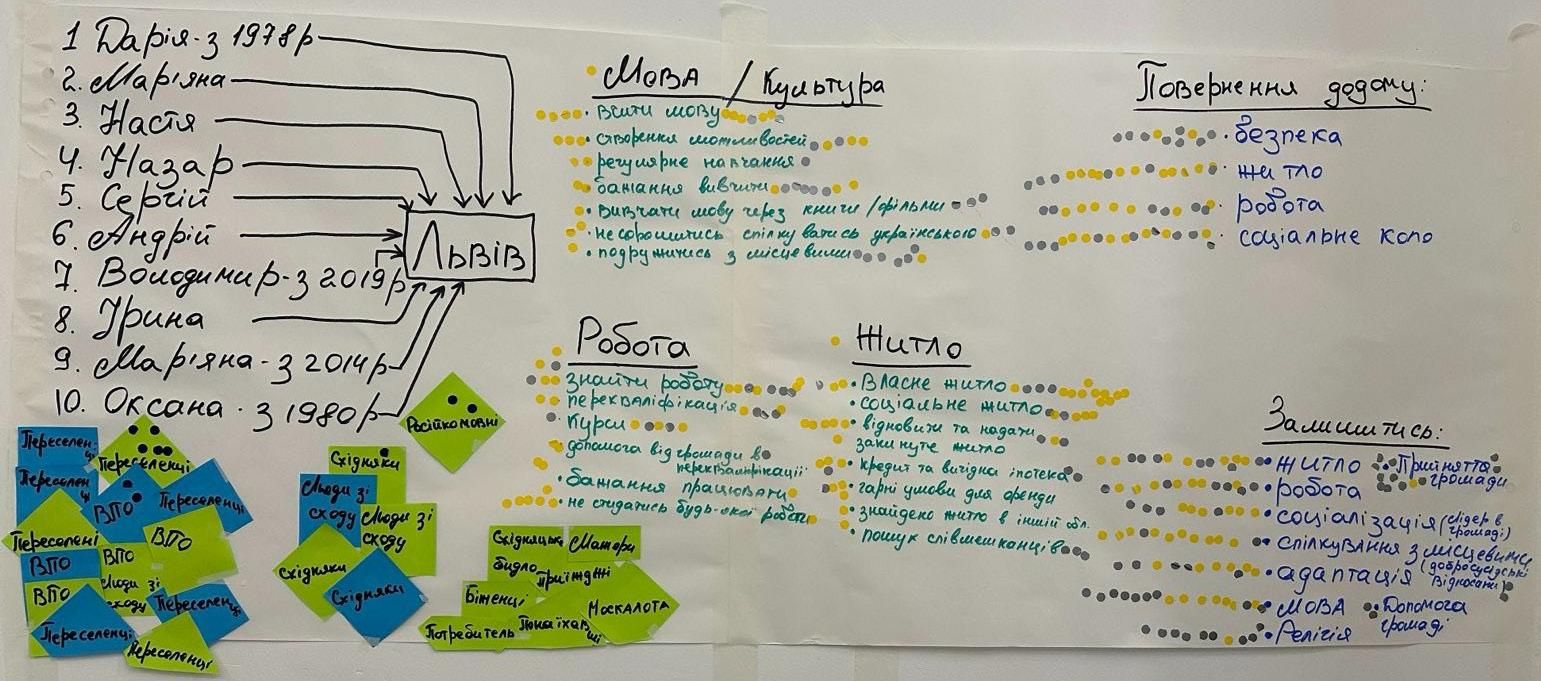 1 Дарія-з 1978р
2. Мар'яна
3. Настя
4. Назар
5. Сергій
6. Андрій
7. Володимир-з 2019р
8. Ірина
9. Мар'яна-з 2014р
10. Оксана-з 1980р
Львів
Мова / Культура
• Вчити мову
• створення можливостей
• регулярне навчання
• бажання вивчити
• вивчати мову через книги/фільми
• не соромитись спілкуватись українською
• подружитись з місцевими
Повернення додому:
• безпека
• житло
• робота
• соціальне коло
Робота
• знайти роботу
• перекваліфікація
• Курси
• допомога від громади в
перекваліфікації
• бажання працювати
• не стидатись будь-якої роботи
Житло
• Власне житло
• соціальне житло
• відновити та надати
закинуте житло
• кредит та вигідна іпотека
• гарні умови для оренди
• знайдено житло в іншій обл.
• пошук співмешканців
Залишитись:
• житло
• Прийняття
громади
• робота
• соціалізація (лідер в
громаді)
• спілкування з місцевими
(добросусідські
відносини)
• адаптація
• мова
• Допомога
громаді
• Релігія
Переселенці
Переселенці
Переселенці
ВПО
Переселенці
Переселені
ВПО
ВПО
ВПО
ВПО
Люди зі
сходу
Переселенці
Переселенці
Переселенці
Східняки
Люди зі
сходу
Люди зі
сходу
Східняки
Східняки
Російкомовні
Східняцьке
бидло
Приїжджі
Біженці
Москалота
Потребитель
Понаїхавші